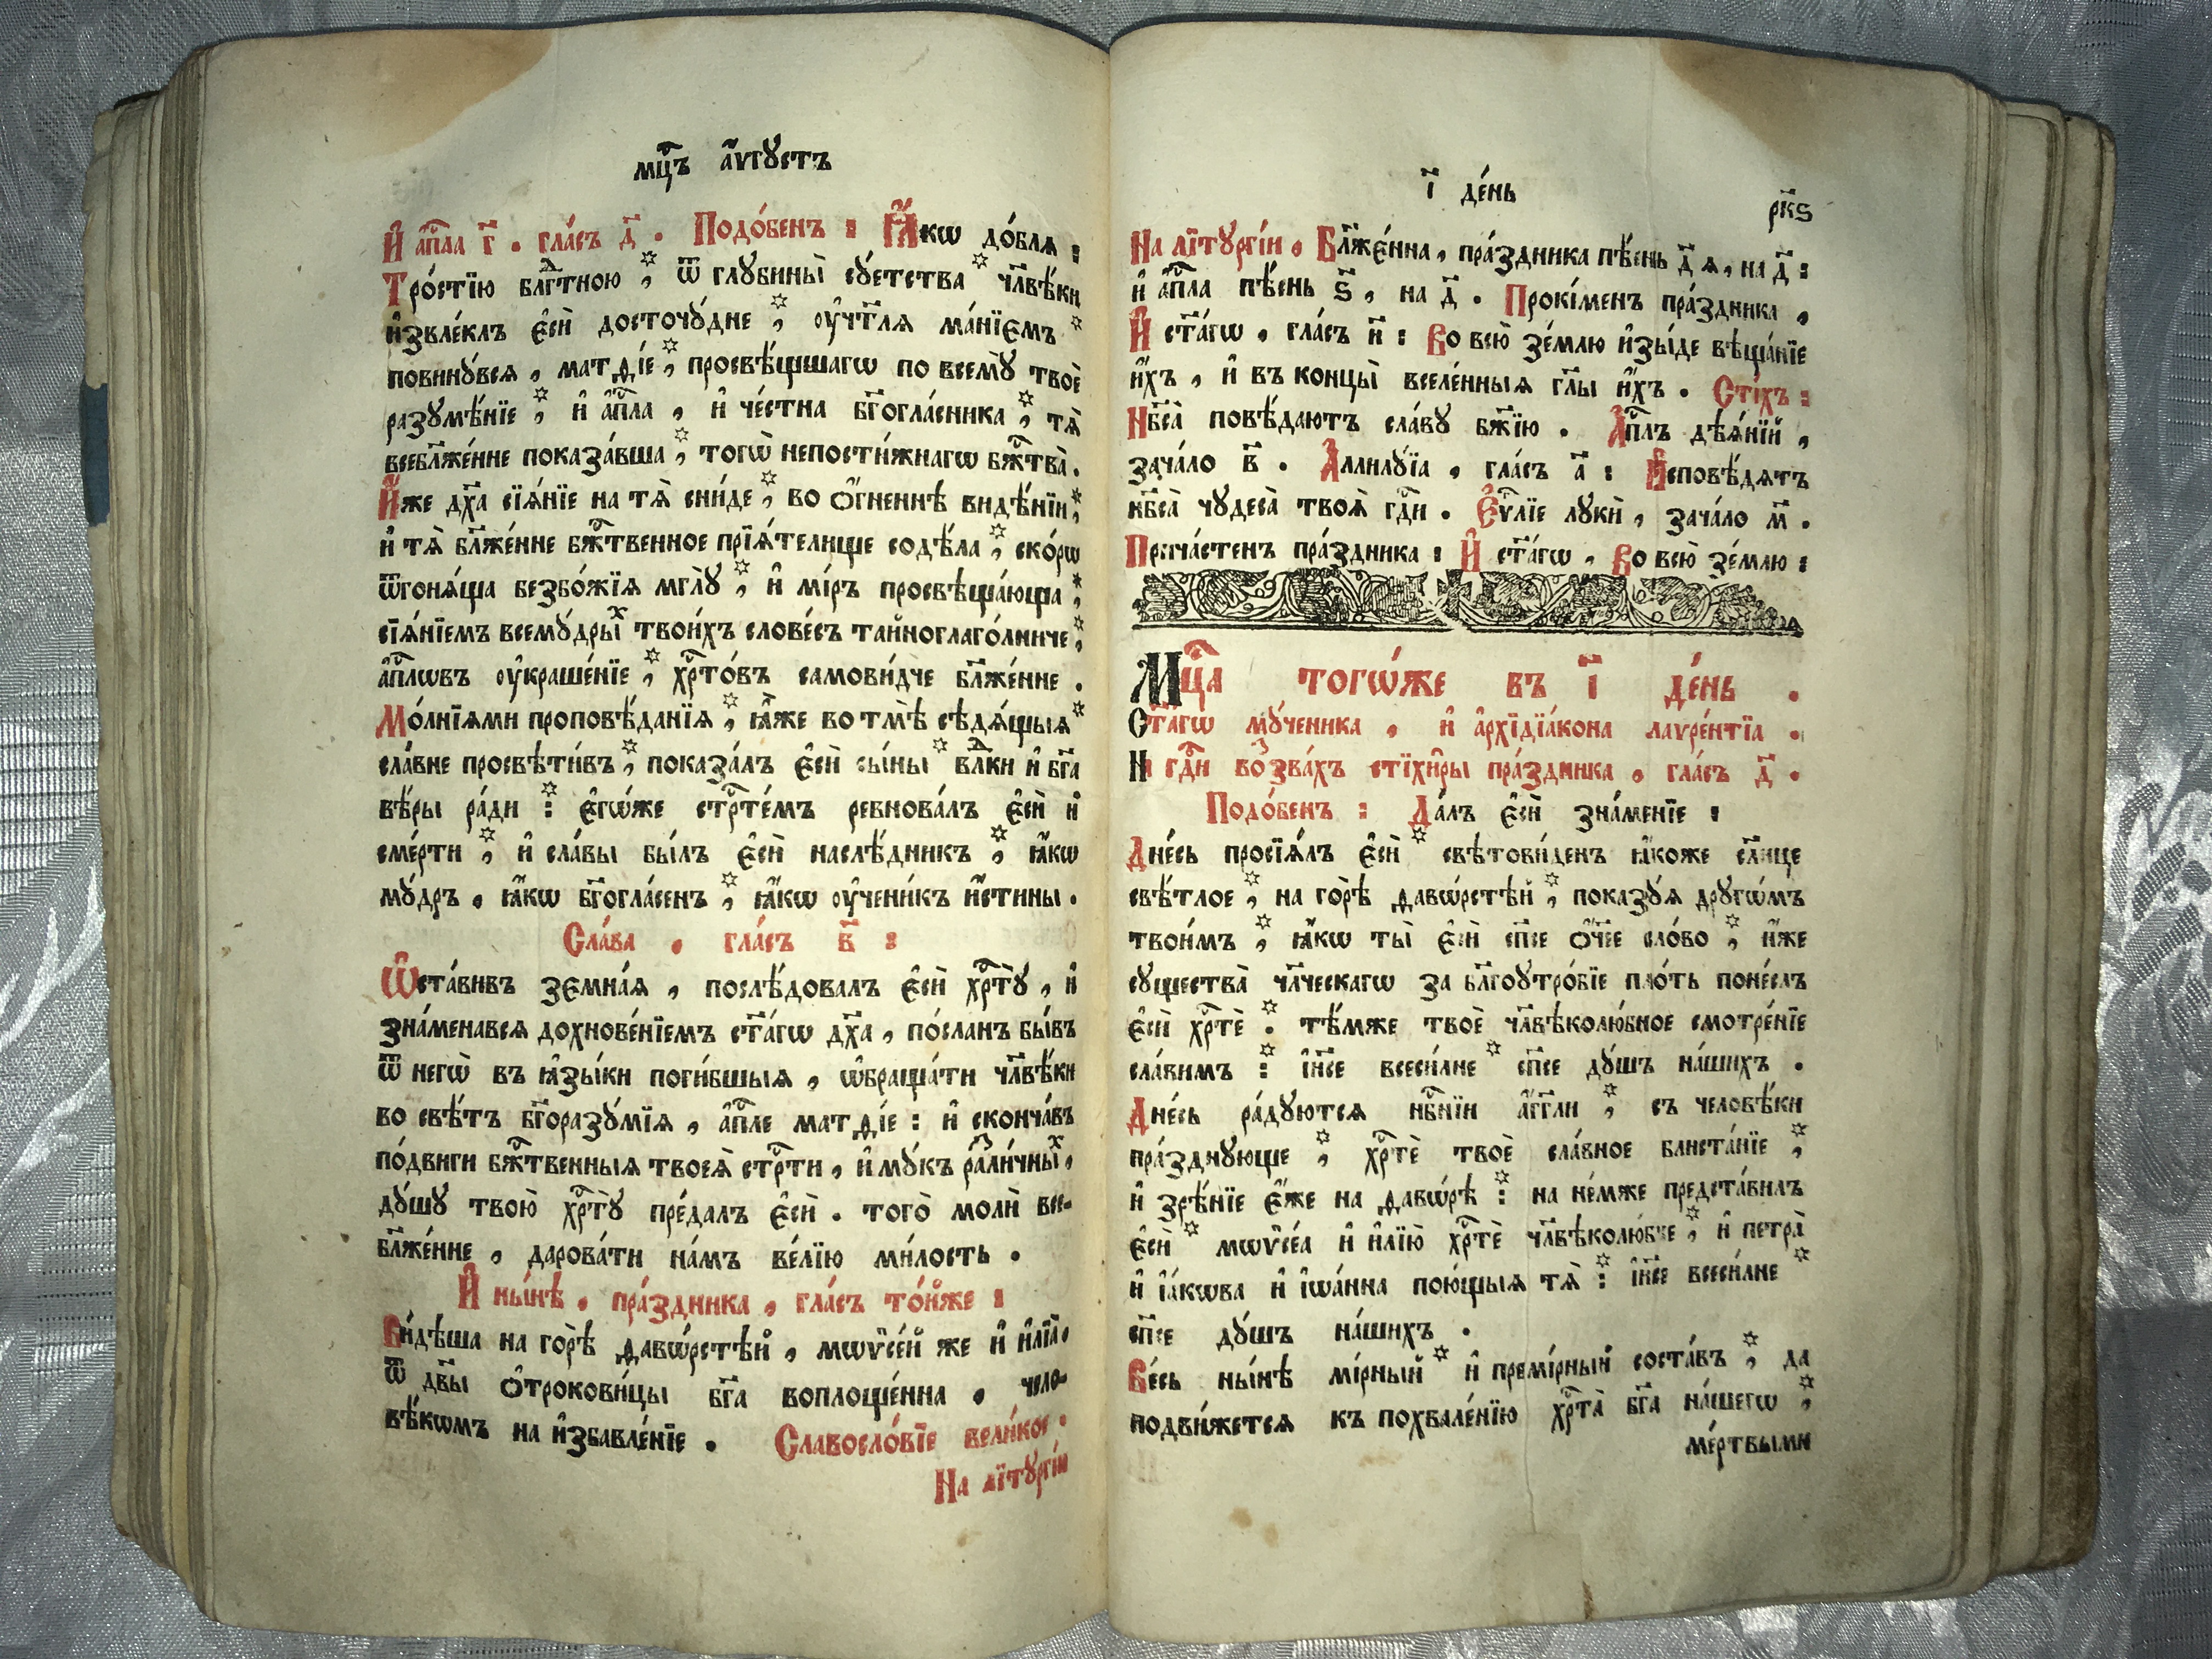 мц҃ъ а҆́ѵгꙋстъ
И҆ а҆пⷭ҇ла г҃ . гла́съ д҃ . Подо́бенъ : Ꙗ҆́кѡ до́блѧ :
Тро́стїю блгⷣтною ⁏ ѿ глꙋбины̀ сꙋ́етства * чл҃вѣ́ки
и҆звле́клъ є҆сѝ досточꙋ́дне ⁏ ᲂу҆чт҃лѧ ма́нїемъ *
повинꙋ́всѧ , матѳі́е ⁏ просвѣ́щшагѡ по всемꙋ̀ твоѐ
разꙋмѣ́нїе ⁏ и҆ а҆пⷭ҇ла , и҆ че́стна бг҃огла́сника ⁏ тѧ̀
всебл҃же́нне показа́вша ⁏ тогѡ̀ непости́жнагѡ бжⷭ҇тва̀ .
И҆́же дх҃а сїѧ́нїе на тѧ̀ сни́де ⁏ во ѻ҆́гненнѣ видѣ́нїи ⁏
и҆ тѧ̀ бл҃же́нне бжⷭ҇твенное прїѧ́телище содѣ́ла ⁏ ско́рѡ
ѿгонѧ́ща безбо́жїѧ мглꙋ̀ ⁏ и҆ мі́ръ просвѣща́юща ⁏
сїѧ́нїемъ всемꙋ́дрыⷯ твои́хъ слове́съ тайноглаго́лниче ⁏
а҆пⷭ҇лѡвъ ᲂу҆краше́нїе ⁏ хрⷭ҇то́въ самови́дче бл҃же́нне .
Мо́лнїѧми проповѣ́данїѧ ⁏ ꙗ҆̀же во тмѣ̀ сѣдѧ́щыѧ *
сла́вне просвѣти́въ ⁏ показа́лъ є҆сѝ сы́ны * влⷣки и҆ бг҃а
вѣ́ры ра́ди : є҆гѡ́же стрⷭ҇те́мъ ревнова́лъ є҆сѝ и҆
сме́рти ⁏ и҆ сла́вы бы́лъ є҆сѝ наслѣ́дникъ ⁏ ꙗ҆́кѡ
мꙋ́дръ . ꙗ҆́кѡ бг҃огла́сенъ ⁏ ꙗ҆́кѡ ᲂу҆чени́къ и҆́стины .
Сла́ва . гла́съ в҃ :
Ѡ҆ста́вивъ земна́ѧ , послѣ́довалъ є҆сѝ хрⷭ҇тꙋ̀ , и҆
зна́менавсѧ дохнове́нїемъ ст҃а́гѡ дх҃а , по́сланъ бы́въ
ѿ негѡ̀ въ ꙗ҆зы́ки поги́бшыѧ , ѡ҆браща́ти чл҃вѣ́ки
во свѣ́тъ бг҃оразꙋ́мїѧ , а҆пⷭ҇ле матѳі́е : и҆ сконча́въ
по́двиги бжⷭ҇твенныѧ твоеѧ̀ стрⷭ҇ти , и҆ мꙋ́къ раⷥли́чныⷯ ,
дꙋ́шꙋ твою̀ хрⷭ҇тꙋ̀ пре́далъ є҆сѝ . того̀ молѝ все-
бл҃же́нне , дарова́ти на́мъ ве́лїю ми́лость .
И҆ ны́нѣ . пра́здника , гла́съ то́йже :
Ви́дѣша на го́рѣ ѳавѡ́рстѣй , мѡѷсе́й же и҆ и҆лїа̀ .
ѿ дв҃ы ѻ҆трокови́цы бг҃а воплоще́нна . чело-
вѣ́кѡмъ на и҆збавле́нїе . Славосло́вїе вели́кое .
На лїтꙋргі́и
і҃ де́нь
рк҃ѕ
На лїтꙋргі́и . Бл҃же́нна , пра́здника пѣ́снь д҃ѧ , на д҃ :
и҆ а҆пⷭ҇ла пѣ́снь ѕ҃ , на д҃ . Прокі́менъ пра́здника ,
И҆ ст҃а́гѡ , гла́съ и҃ : Во всю̀ зе́млю и҆зы́де вѣща́нїе
и҆́хъ , и҆ въ концы̀ вселе́нныѧ гл҃ы и҆́хъ . Сті́хъ :
Нб҃са̀ повѣ́даютъ сла́вꙋ бж҃їю . А҆пⷭ҇лъ дѣѧ́нїй ,
зача́ло в҃ . А҆ллилꙋ́їа , гла́съ а҃ : И҆сповѣ́дѧтъ
нб҃са̀ чꙋдеса̀ твоѧ̀ гдⷭ҇и . Є҆ѵⷢ҇лїе лꙋкѝ , зача́ло м҃ .
Прича́стенъ пра́здника : И҆ ст҃а́гѡ , Во всю̀ зе́млю :
Мцⷭ҇а тогѡ́же въ і҃ де́нь .
Ст҃а́гѡ мꙋ́ченика , и҆ а҆рхїдїа́кона лаѵре́нтїа .
Н гдⷭ҇и воⷥзва́хъ стїхи̑ры пра́здника , гла́съ д҃ .
Подо́бенъ : Да́лъ є҆сѝ зна́менїе :
Дне́сь просїѧ́лъ є҆сѝ * свѣтови́денъ ꙗ҆́коже сл҃нце
свѣ́тлое ⁏ на го́рѣ ѳавѡ́рстѣй ⁏ показꙋ́ѧ дрꙋгѡ́мъ
твои́мъ ⁏ ꙗ҆́кѡ ты̀ є҆сѝ сп҃се ѻ҆́ч҃ее сло́во ⁏ и҆́же
сꙋщества̀ чл҃ческагѡ за бл҃гоꙋтро́бїе пло́ть поне́слъ
є҆сѝ хрⷭ҇тѐ . тѣ́мже твоѐ чл҃вѣколю́бное смотре́нїе
сла́вимъ : і҆и҃се всеси́лне * сп҃се дꙋ́шъ на́шихъ .
Дне́сь ра́дꙋютсѧ нб҃нїи а҆́гг҃ли ⁏ съ человѣ́ки
пра́зднꙋюще ⁏ хрⷭ҇тѐ твоѐ сла́вное блиста́нїе ⁏
и҆ зрѣ́нїе є҆́же на ѳавѡ́рѣ : на не́мже предста́вилъ
є҆сѝ * мѡѷсе́а и҆ и҆лїю̀ хрⷭ҇тѐ чл҃вѣколю́бче ⁏ и҆ петра̀
и҆ і҆а́кѡва и҆ і҆ѡа́нна пою́щыѧ тѧ̀ : і҆и҃се всеси́лне *
сп҃се дꙋ́шъ на́шихъ .
Ве́сь ны́нѣ мі́рный * и҆ премі́рный соста́въ ⁏ да
подви́жетсѧ къ похвале́нїю хрⷭ҇та̀ бг҃а на́шегѡ ⁏
ме́ртвыми